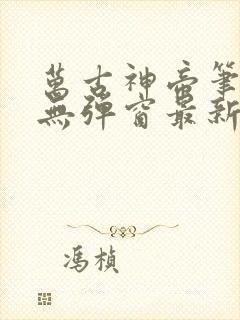 萬古神帝筆
無彈窗最新
馮楨